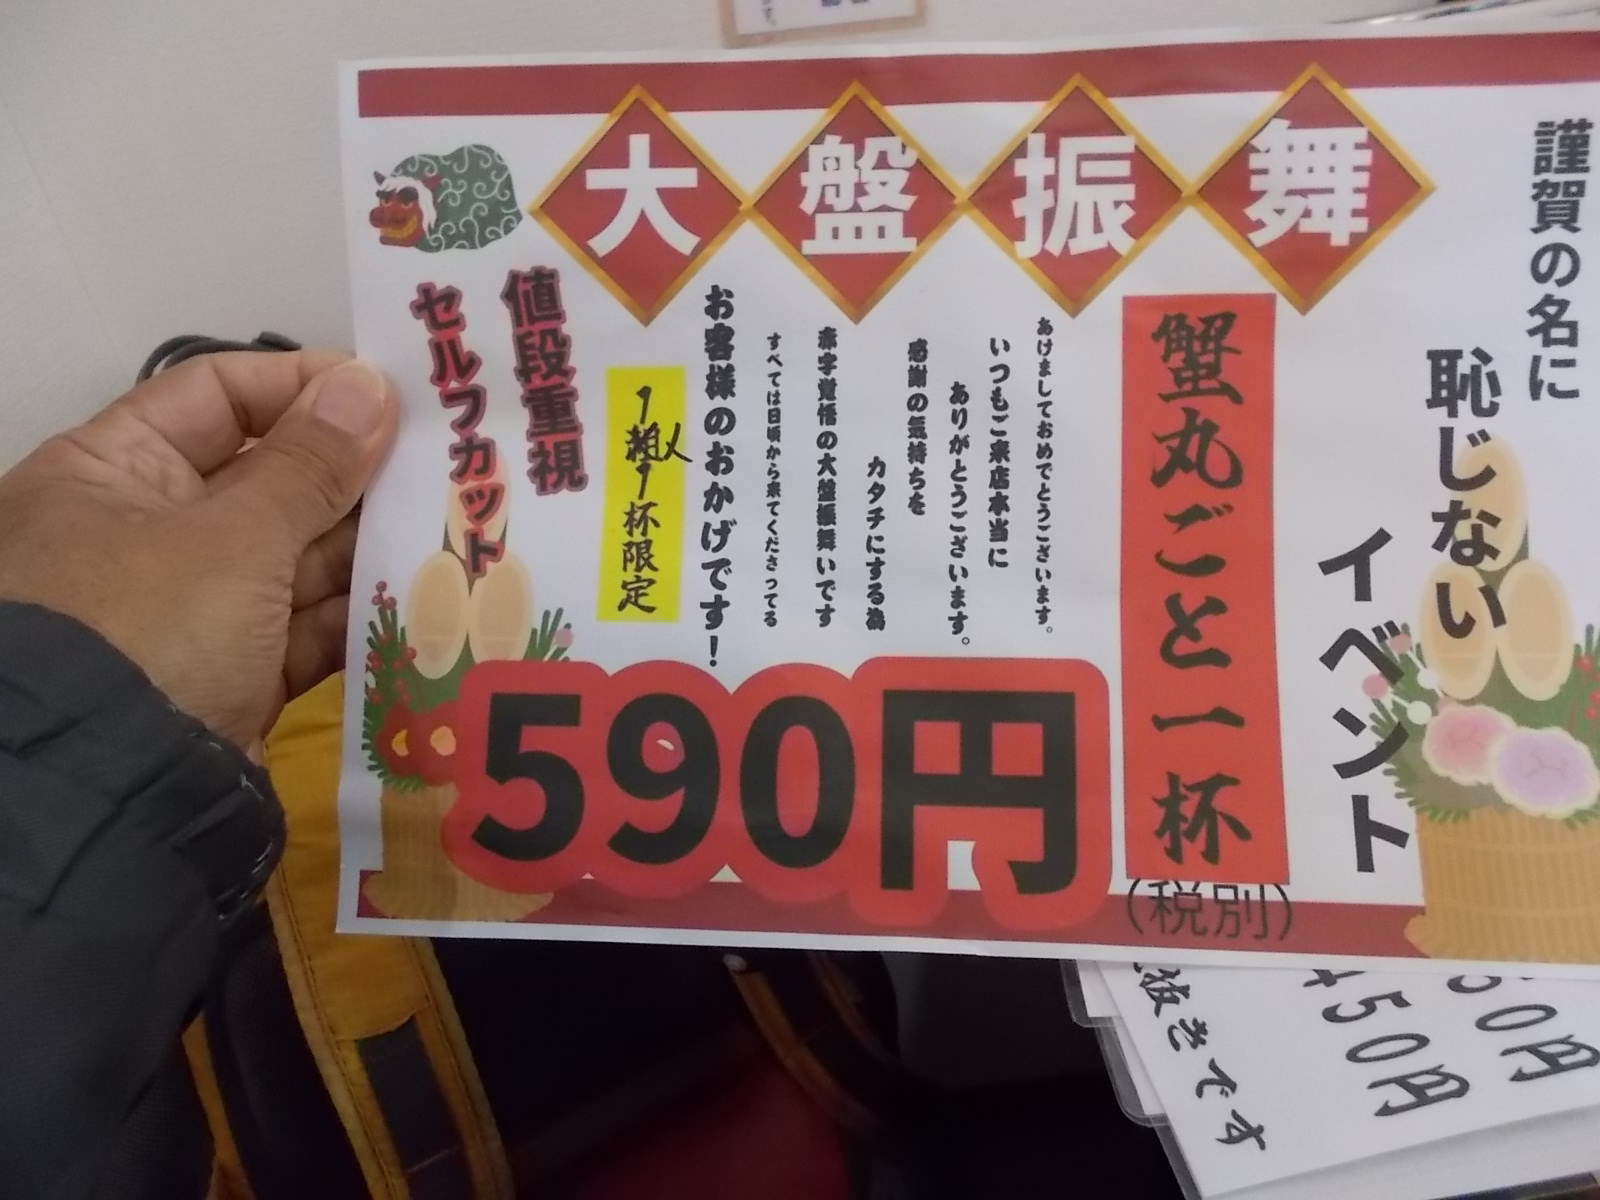 大盤振舞
謹賀の名に
恥じない
イベント
蟹丸ごと一杯
あけましておめでとうございます。
いつもご来店本当に
ありがとうございます。
感謝の気持ちを
カタチにする為
赤字覚悟の大盤振舞いです
すべては日頃から来てくださってる
お客様のおかげです!
1人1杯限定
値段重視
セルフカット
590円
(税別)
50円
450円
抜きです